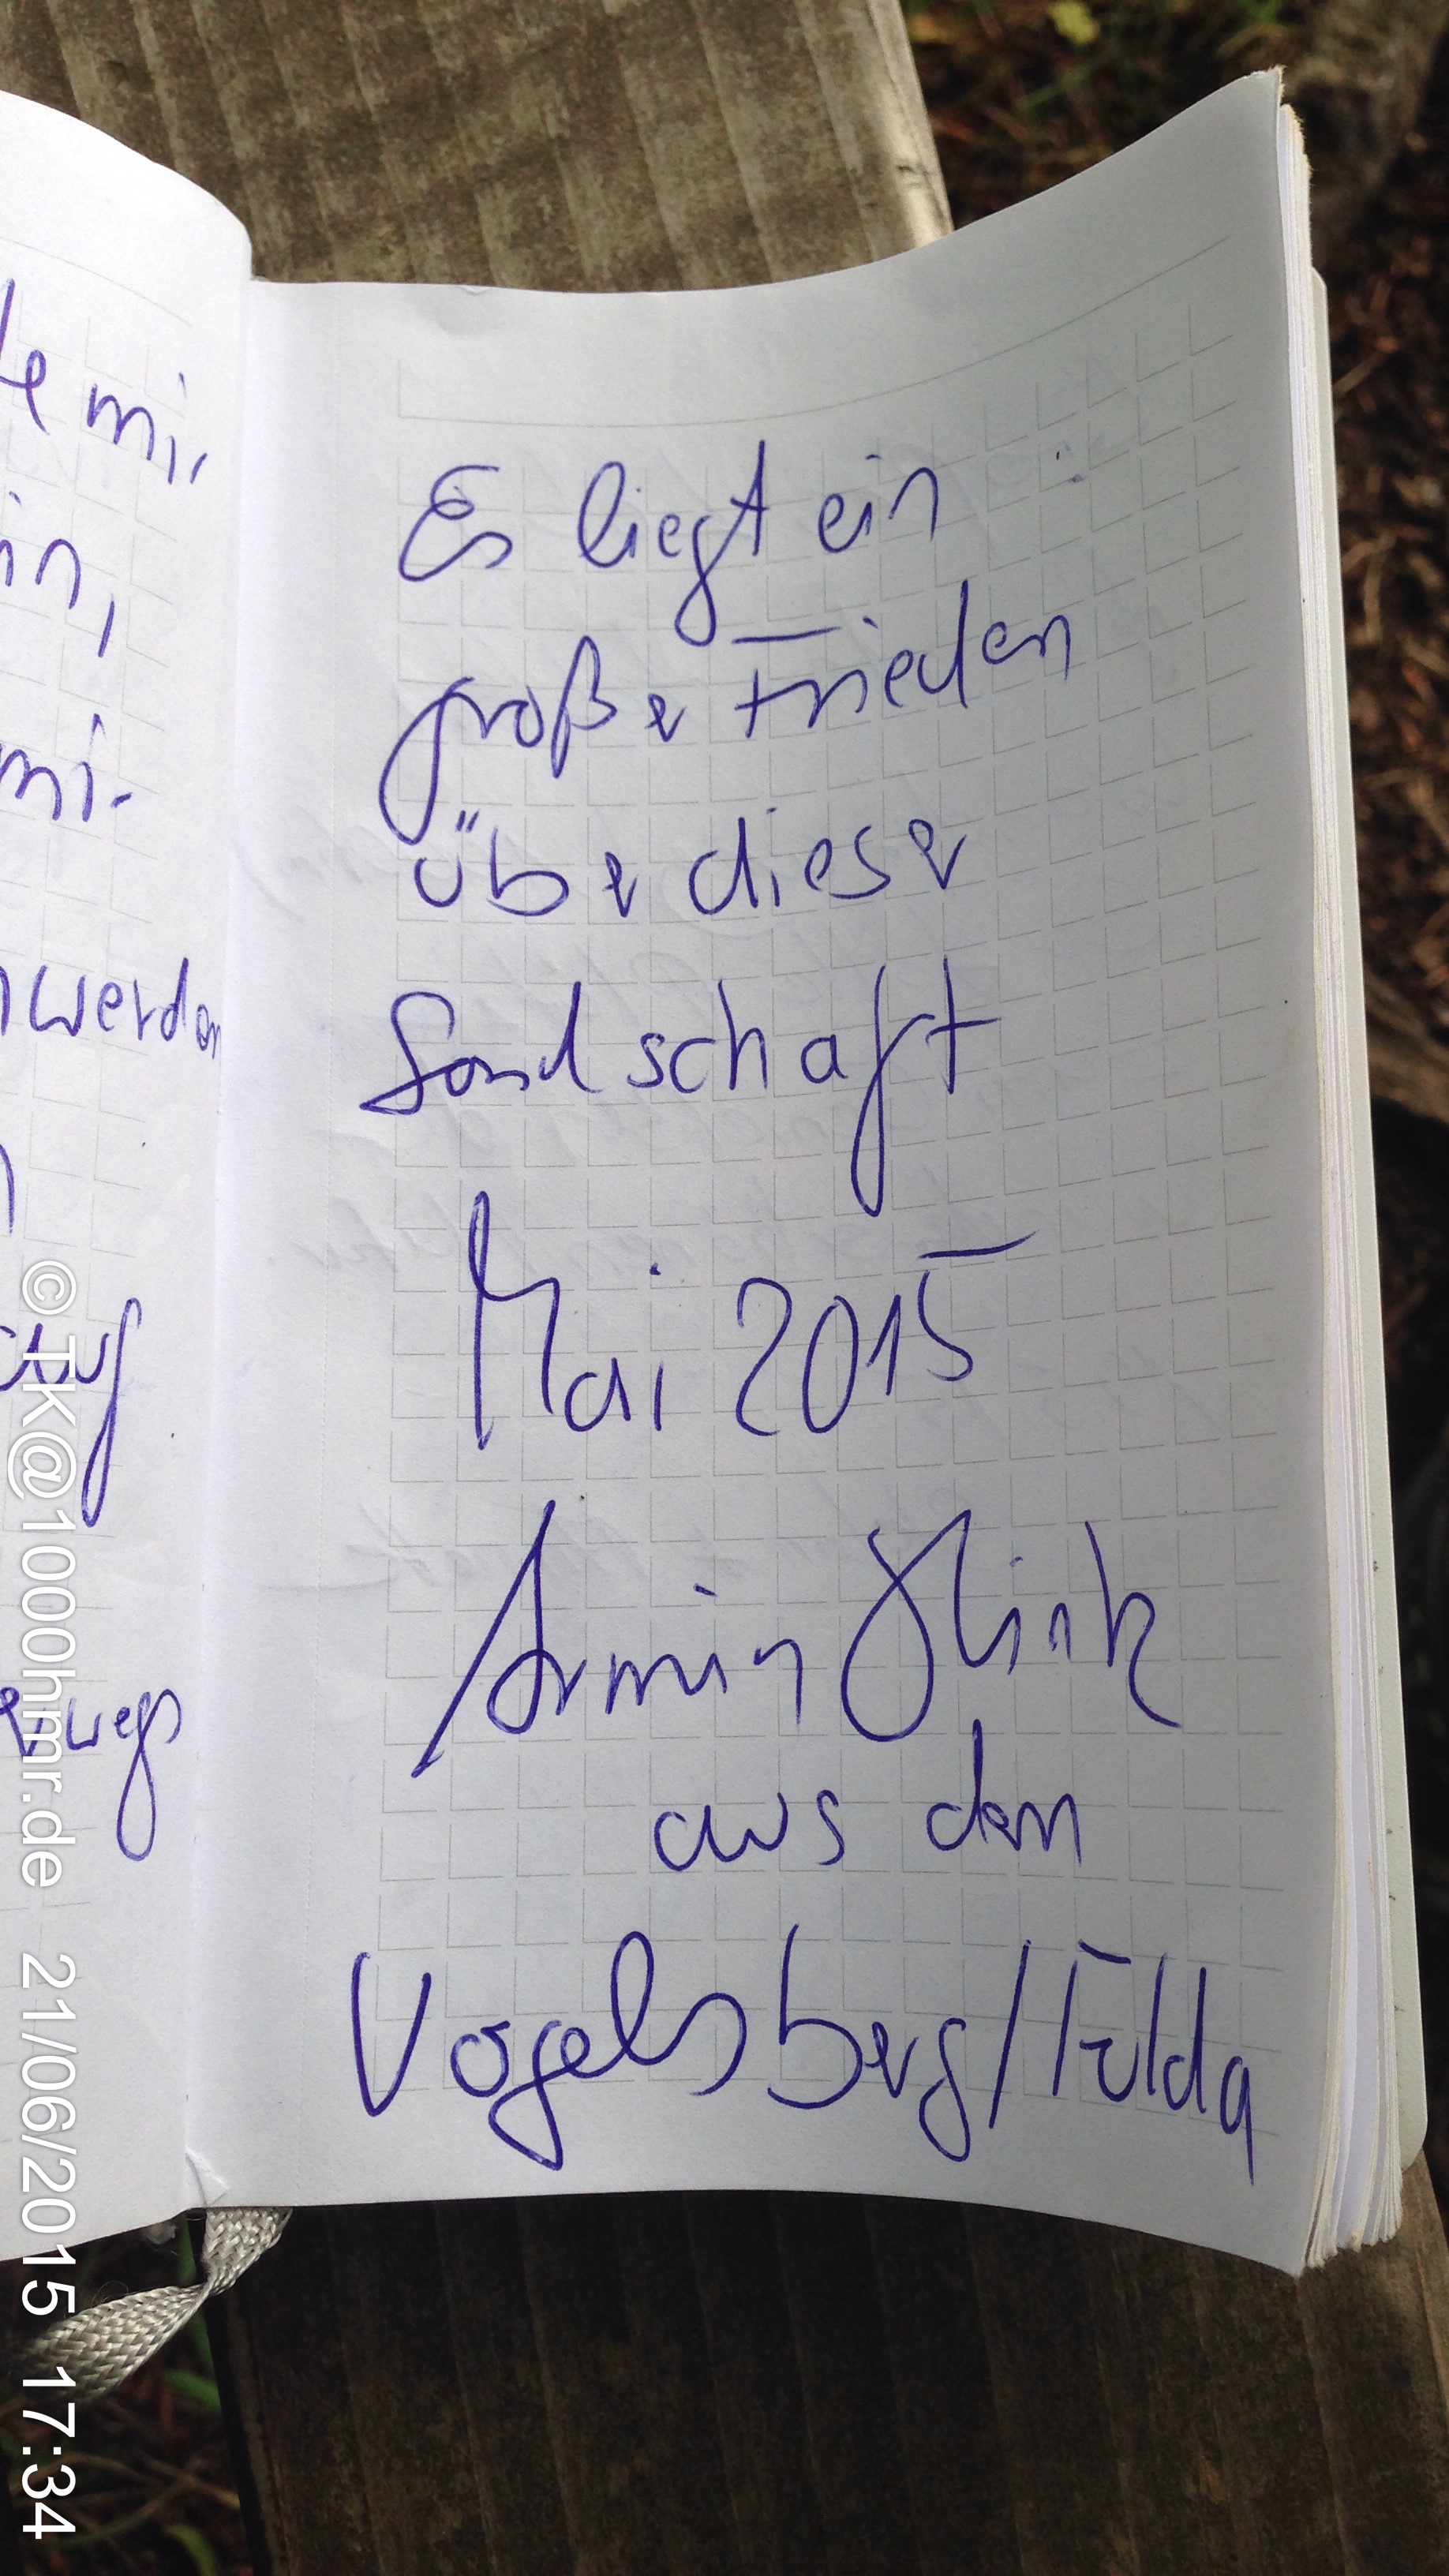 Es liegt ein
großer Frieden
über dieser
Landschaft
Mai 2015
Armin
aus dem
Vogelsberg/Fulda
mir
in,
werden
auf
©TK@1000hmr.de 21/06/2015 17:34